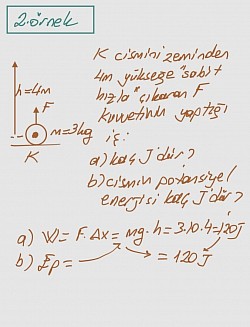 2.örnek
h=4m
F
m=3kg
K
K cismini zeminden
4m yükseğe "sabit
hızla" çıkaran F
kuvvetinin yaptığı
iş:
a) kaç J dür?
b) cismin potansiyel
enerjisi kaç J dür?
a) W= F.Δx = mg.h = 3.10.4=120J
b) Ep= = 120J